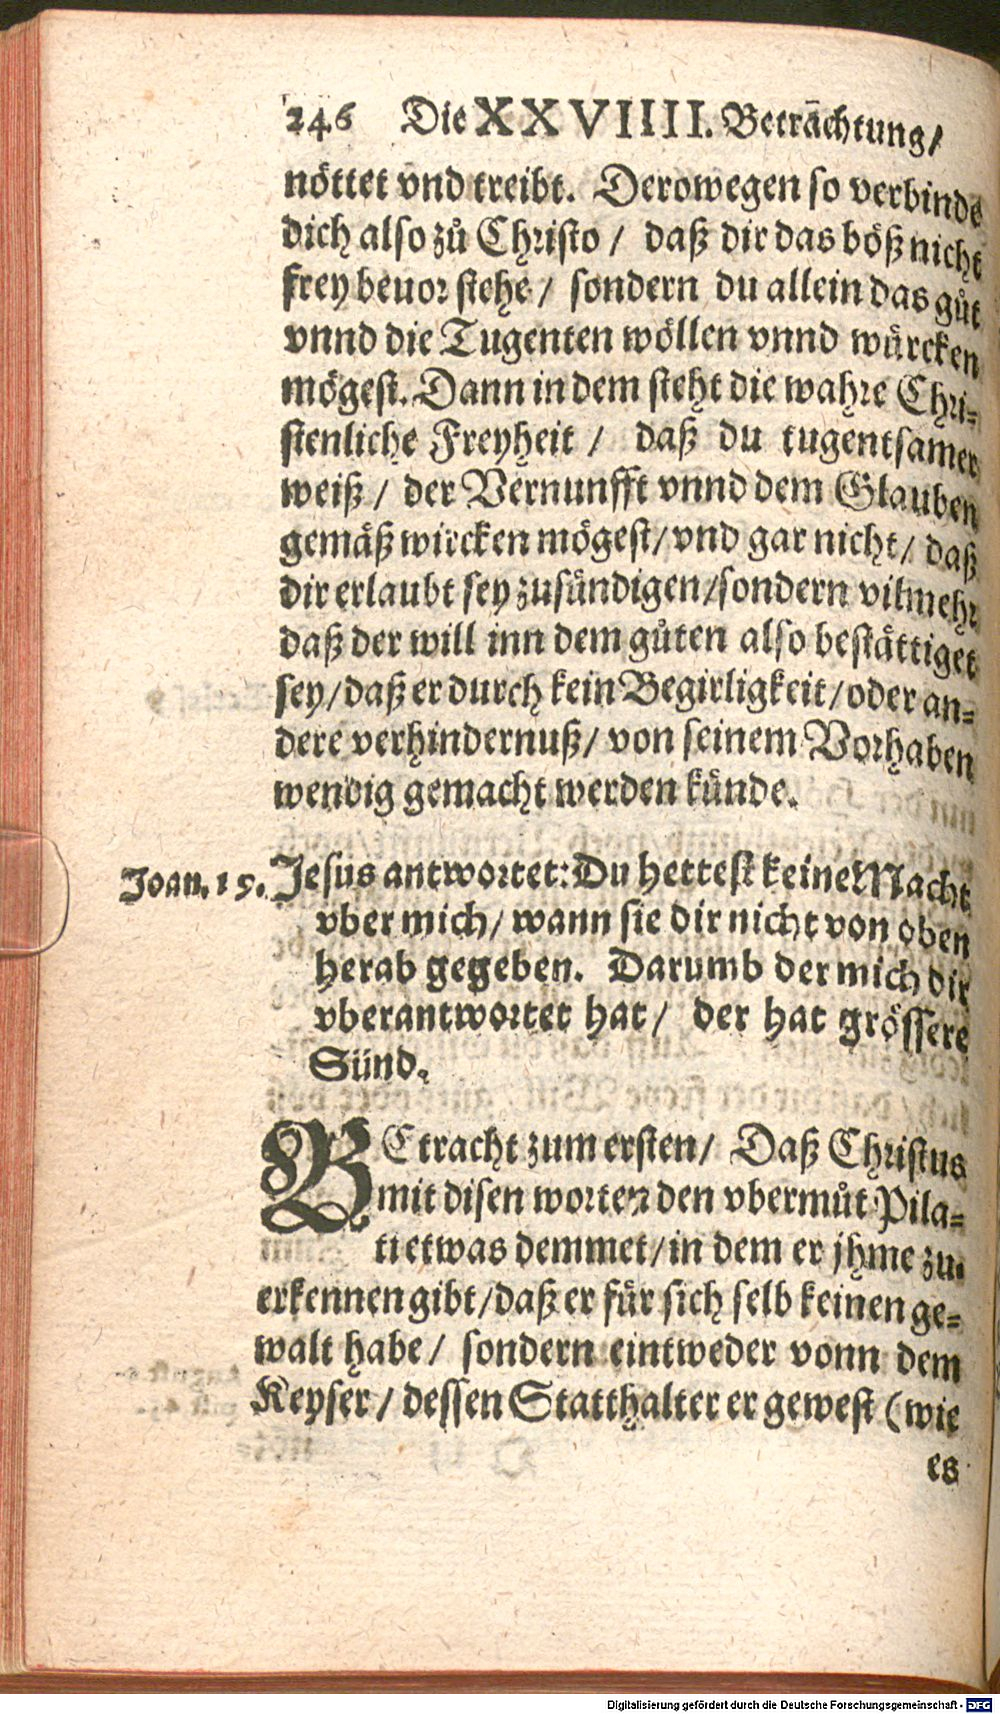 246 Die XXVIIII. Beträchtung/
nöttet vnd treibt. Derowegen so verbinde
dich also zů Christo / daß dir das böß nicht
frey beuor stehe / sondern du allein das gůt
vnnd die Tugenten wöllen vnnd würcken
mögest. Dann in dem steht die wahre Chri-
stenliche Freyheit / daß du tugentsamer
weiß / der Vernunfft vnnd dem Glauben
gemäß wircken mögest/ vnd gar nicht/ daß
dir erlaubt sey zusündigen/sondern vilmehr
daß der will inn dem gůten also bestättiget
sey/daß er durch kein Begirligkeit/oder an-
dere verhindernuß/ von seinem Vorhaben
wendig gemacht werden künde.
Joan. 19. Jesus antwortet: Du hettest keine Macht
vber mich/ wann sie dir nicht von oben
herab gegeben. Darumb der mich dir
vberantwortet hat/ der hat grössere
Sünd.
BEtracht zum ersten/ Daß Christus
mit disen worten den vbermůt Pila-
ti etwas demmet/in dem er jhme zu
erkennen gibt/daß er für sich selb keinen ge-
walt habe/ sondern eintweder vonn dem
Keyser / dessen Statthalter er gewest (wie
es
Digitalisierung gefördert durch die Deutsche Forschungsgemeinschaft - DFG